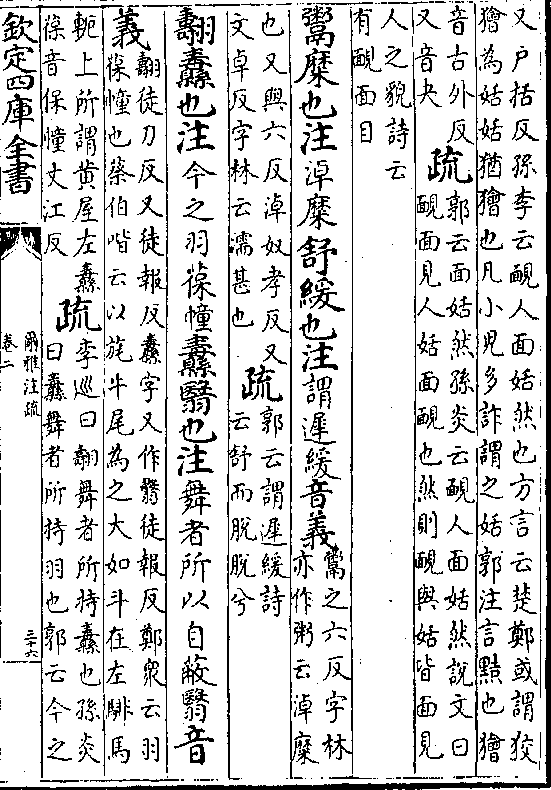 又户括反孫李云靦人面姡然也方言云楚鄭或謂狡
獪為姡姡猶獪也凡小兒多詐謂之姡郭注言黠也獪
音古外反
又音夬
疏
郭云面姡然孫炎云靦人面姡然說文曰
靦面見人姡面靦也然則靦與姡皆面見
人之貌詩云
有靦面目
鬻糜也注淖糜舒緩也注謂遲緩音義
鬻之六反字林
亦作粥云淖糜
也又與六反淖奴孝反又
文卓反字林云濡甚也
疏
郭云謂遲緩詩
云舒而脫脫兮
翿纛也注今之羽葆幢纛翳也注舞者所以自蔽翳音
義
翿徒刀反又徒報反纛字又作翢徒報反鄭衆云羽
葆幢也蔡伯喈云以旄牛尾為之大如斗在左騑馬
軛上所謂黄屋左纛
葆音保幢丈江反
疏
李巡曰翿舞者所持纛也孫炎
曰纛舞者所持羽也郭云今之
欽定四庫全書
爾雅注疏
卷二
三十六